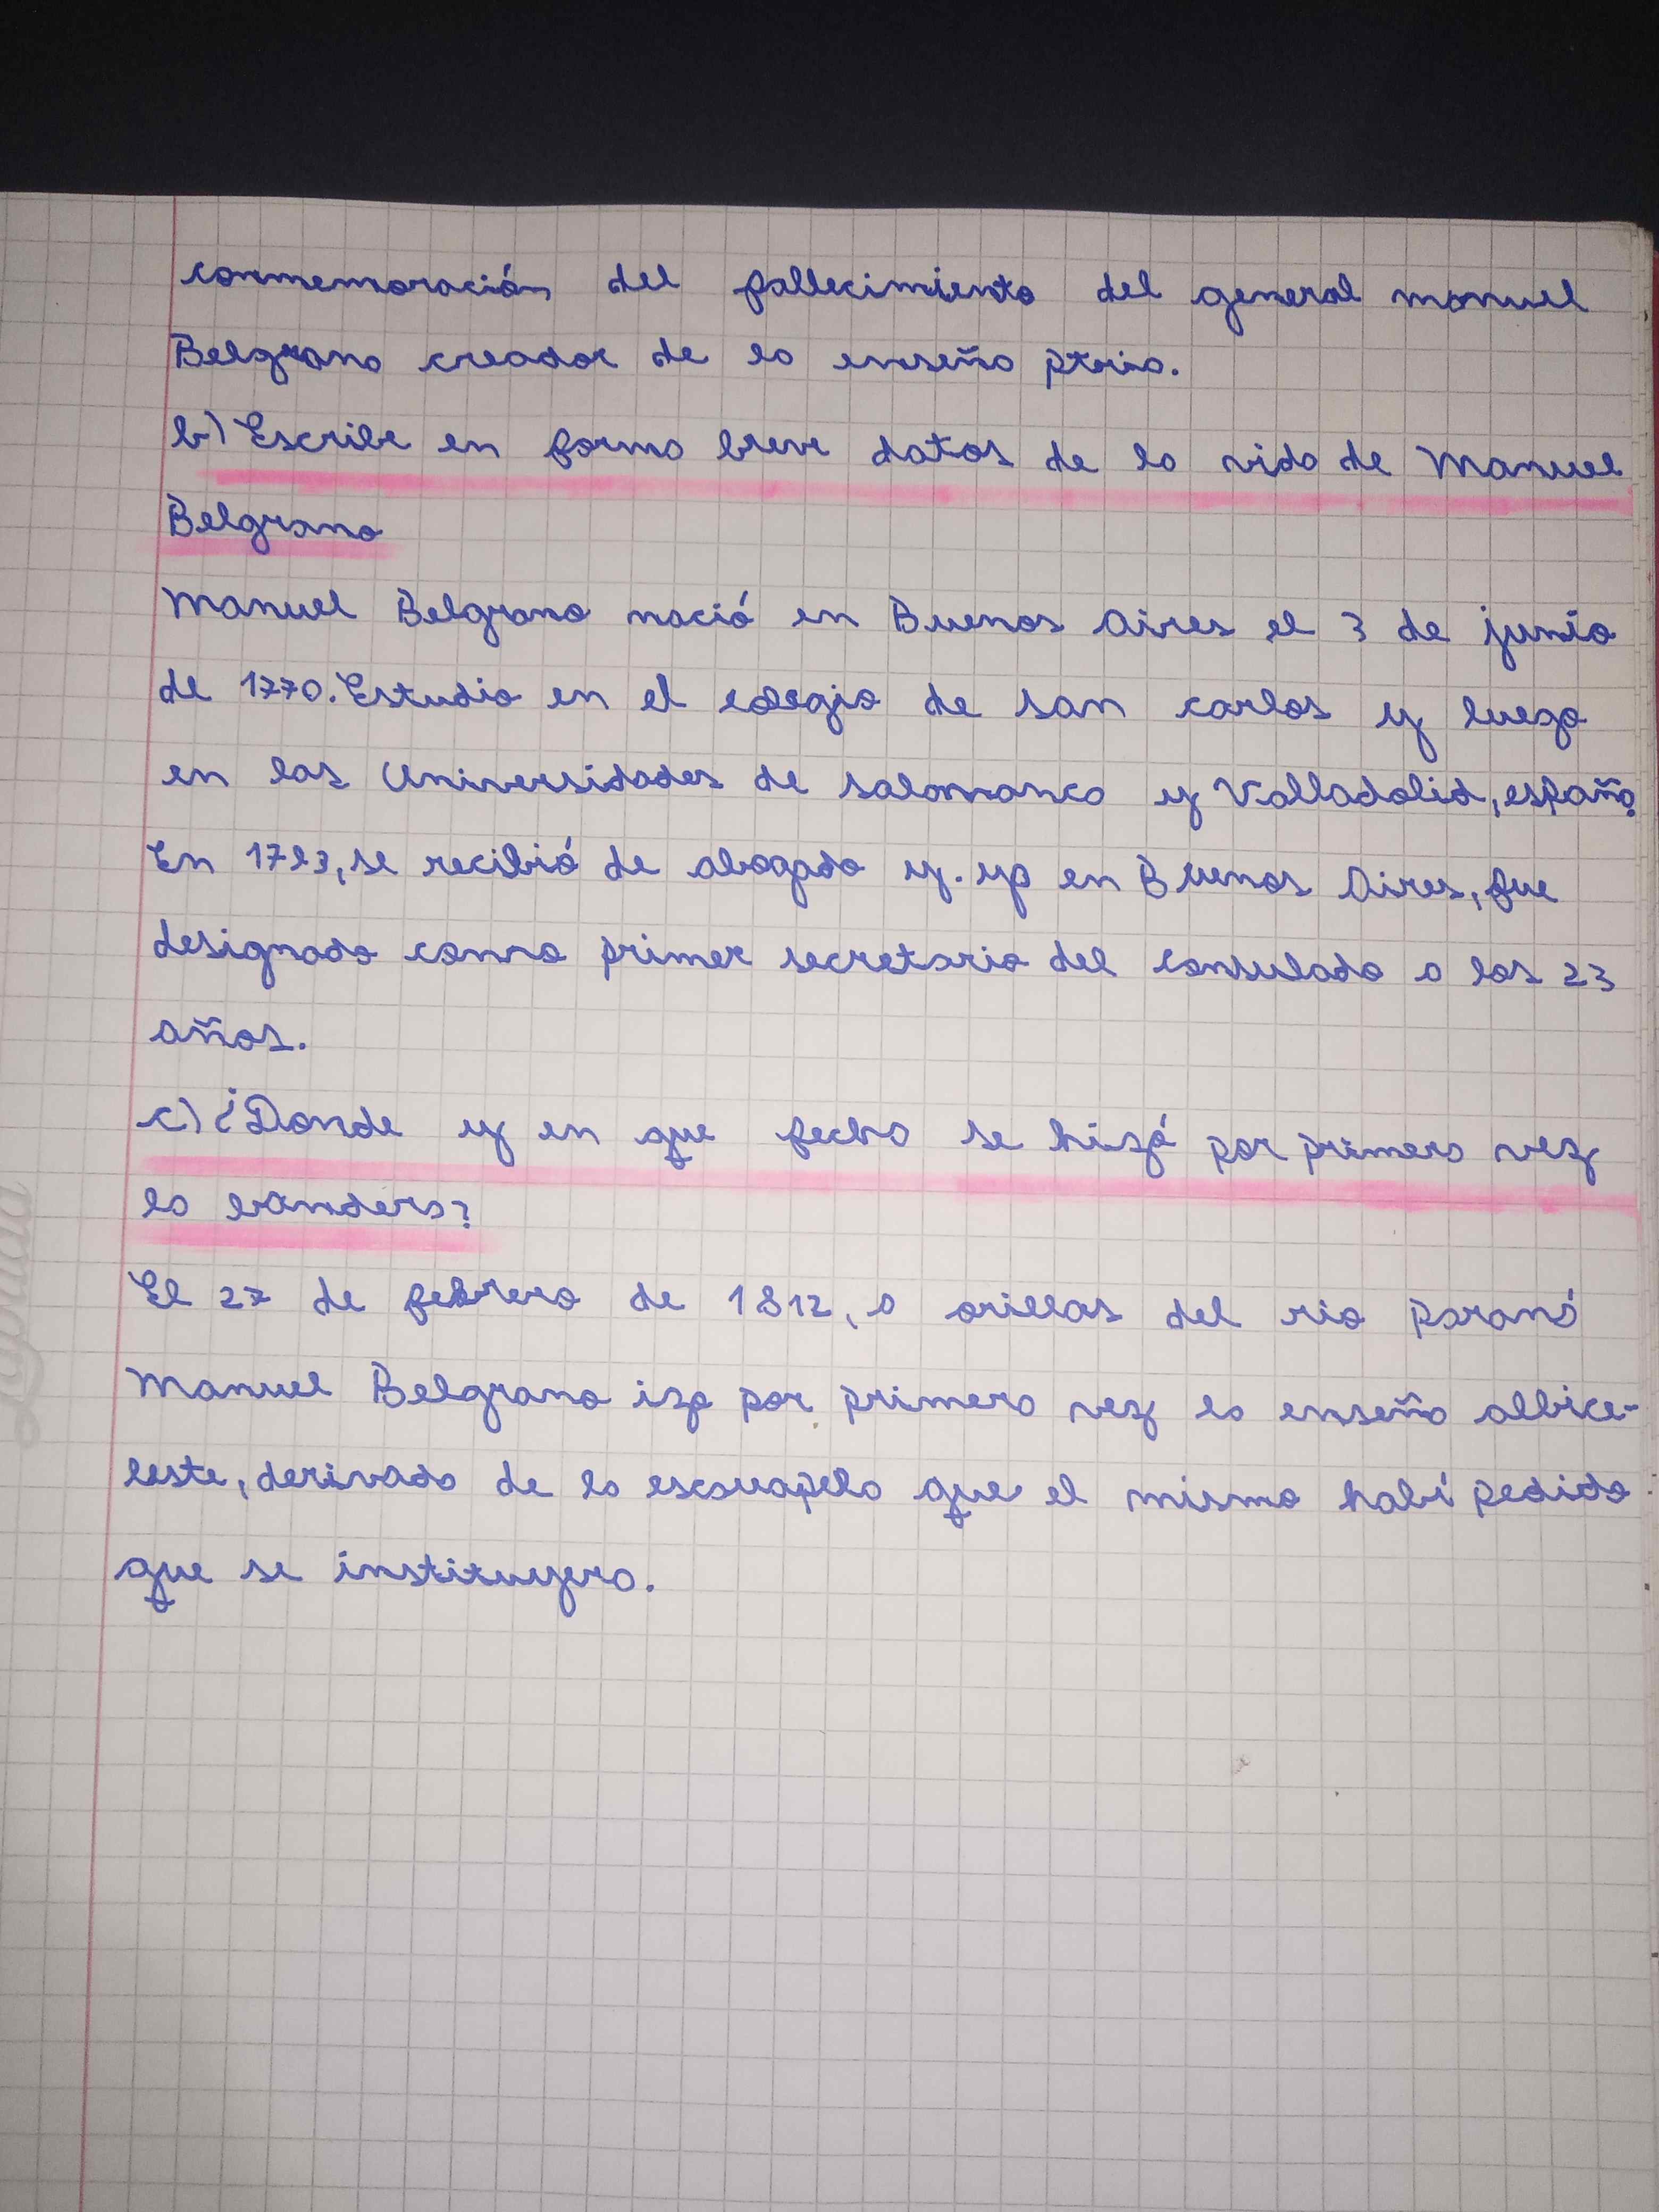 conmemoración del fallecimiento del general manuel
Belgrano creador de la enseña ptria.
b) Escribe en forma breve datos de la vida de Manuel
Belgrano
Manuel Belgrano nació en Buenos Aires el 3 de junio
de 1770. Estudio en el colegio de san carlos y luego
en las Universidades de salamanca y Valladolid, españa.
En 1793, se recibió de abogado y. ya en Buenos Aires, fue
designado como primer secretario del Consulado a los 23
años.
c) ¿Donde y en que fecha se hizó por primera vez
la bandera?
El 27 de febrero de 1812, a orillas del rio paraná
Manuel Belgrano izo por primera vez la enseña albice-
leste, derivada de la escarapela que el mismo habí pedido
que se instituyera.